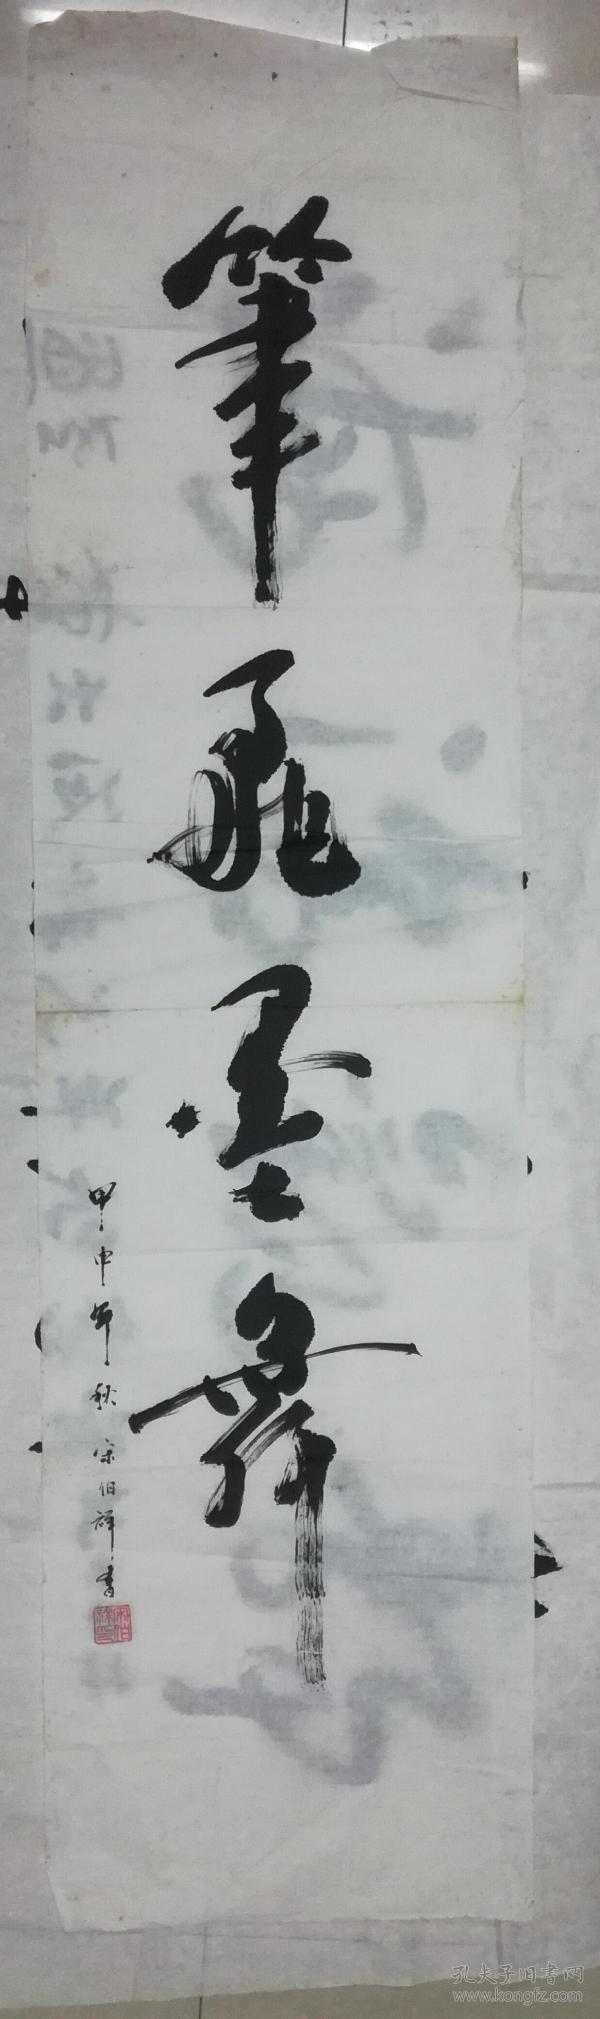 筆飛墨舞
甲申年秋 宋伯祥書
宋伯祥印
孔夫子旧书网
www.kongfz.com